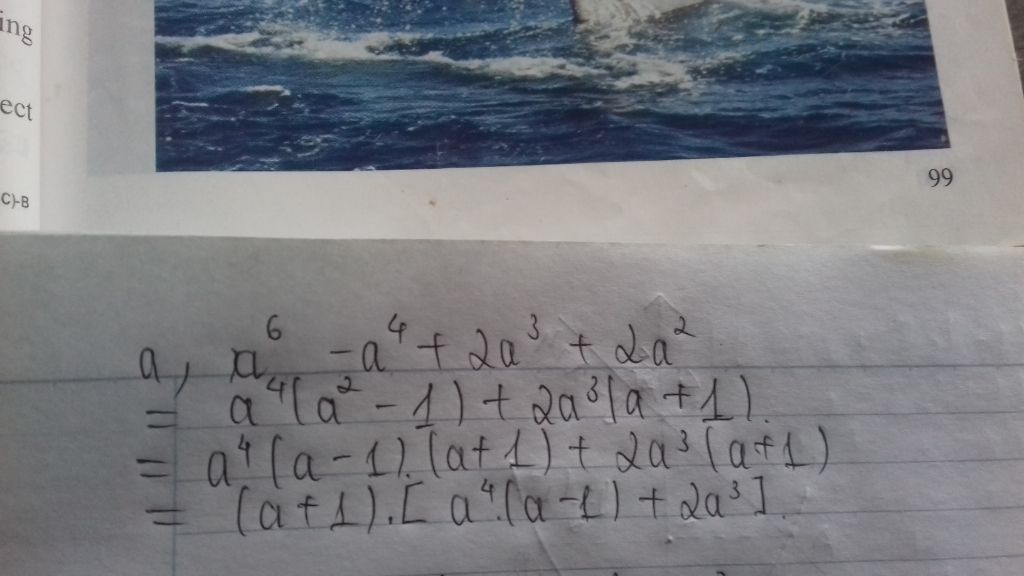 ing
ect
C)-B
99
a, a⁶ - a⁴ + 2a³ + 2a²
= a⁴(a² - 1) + 2a³(a + 1).
= a⁴(a - 1).(a + 1) + 2a³(a + 1)
= (a + 1).[a⁴.(a - 1) + 2a³].